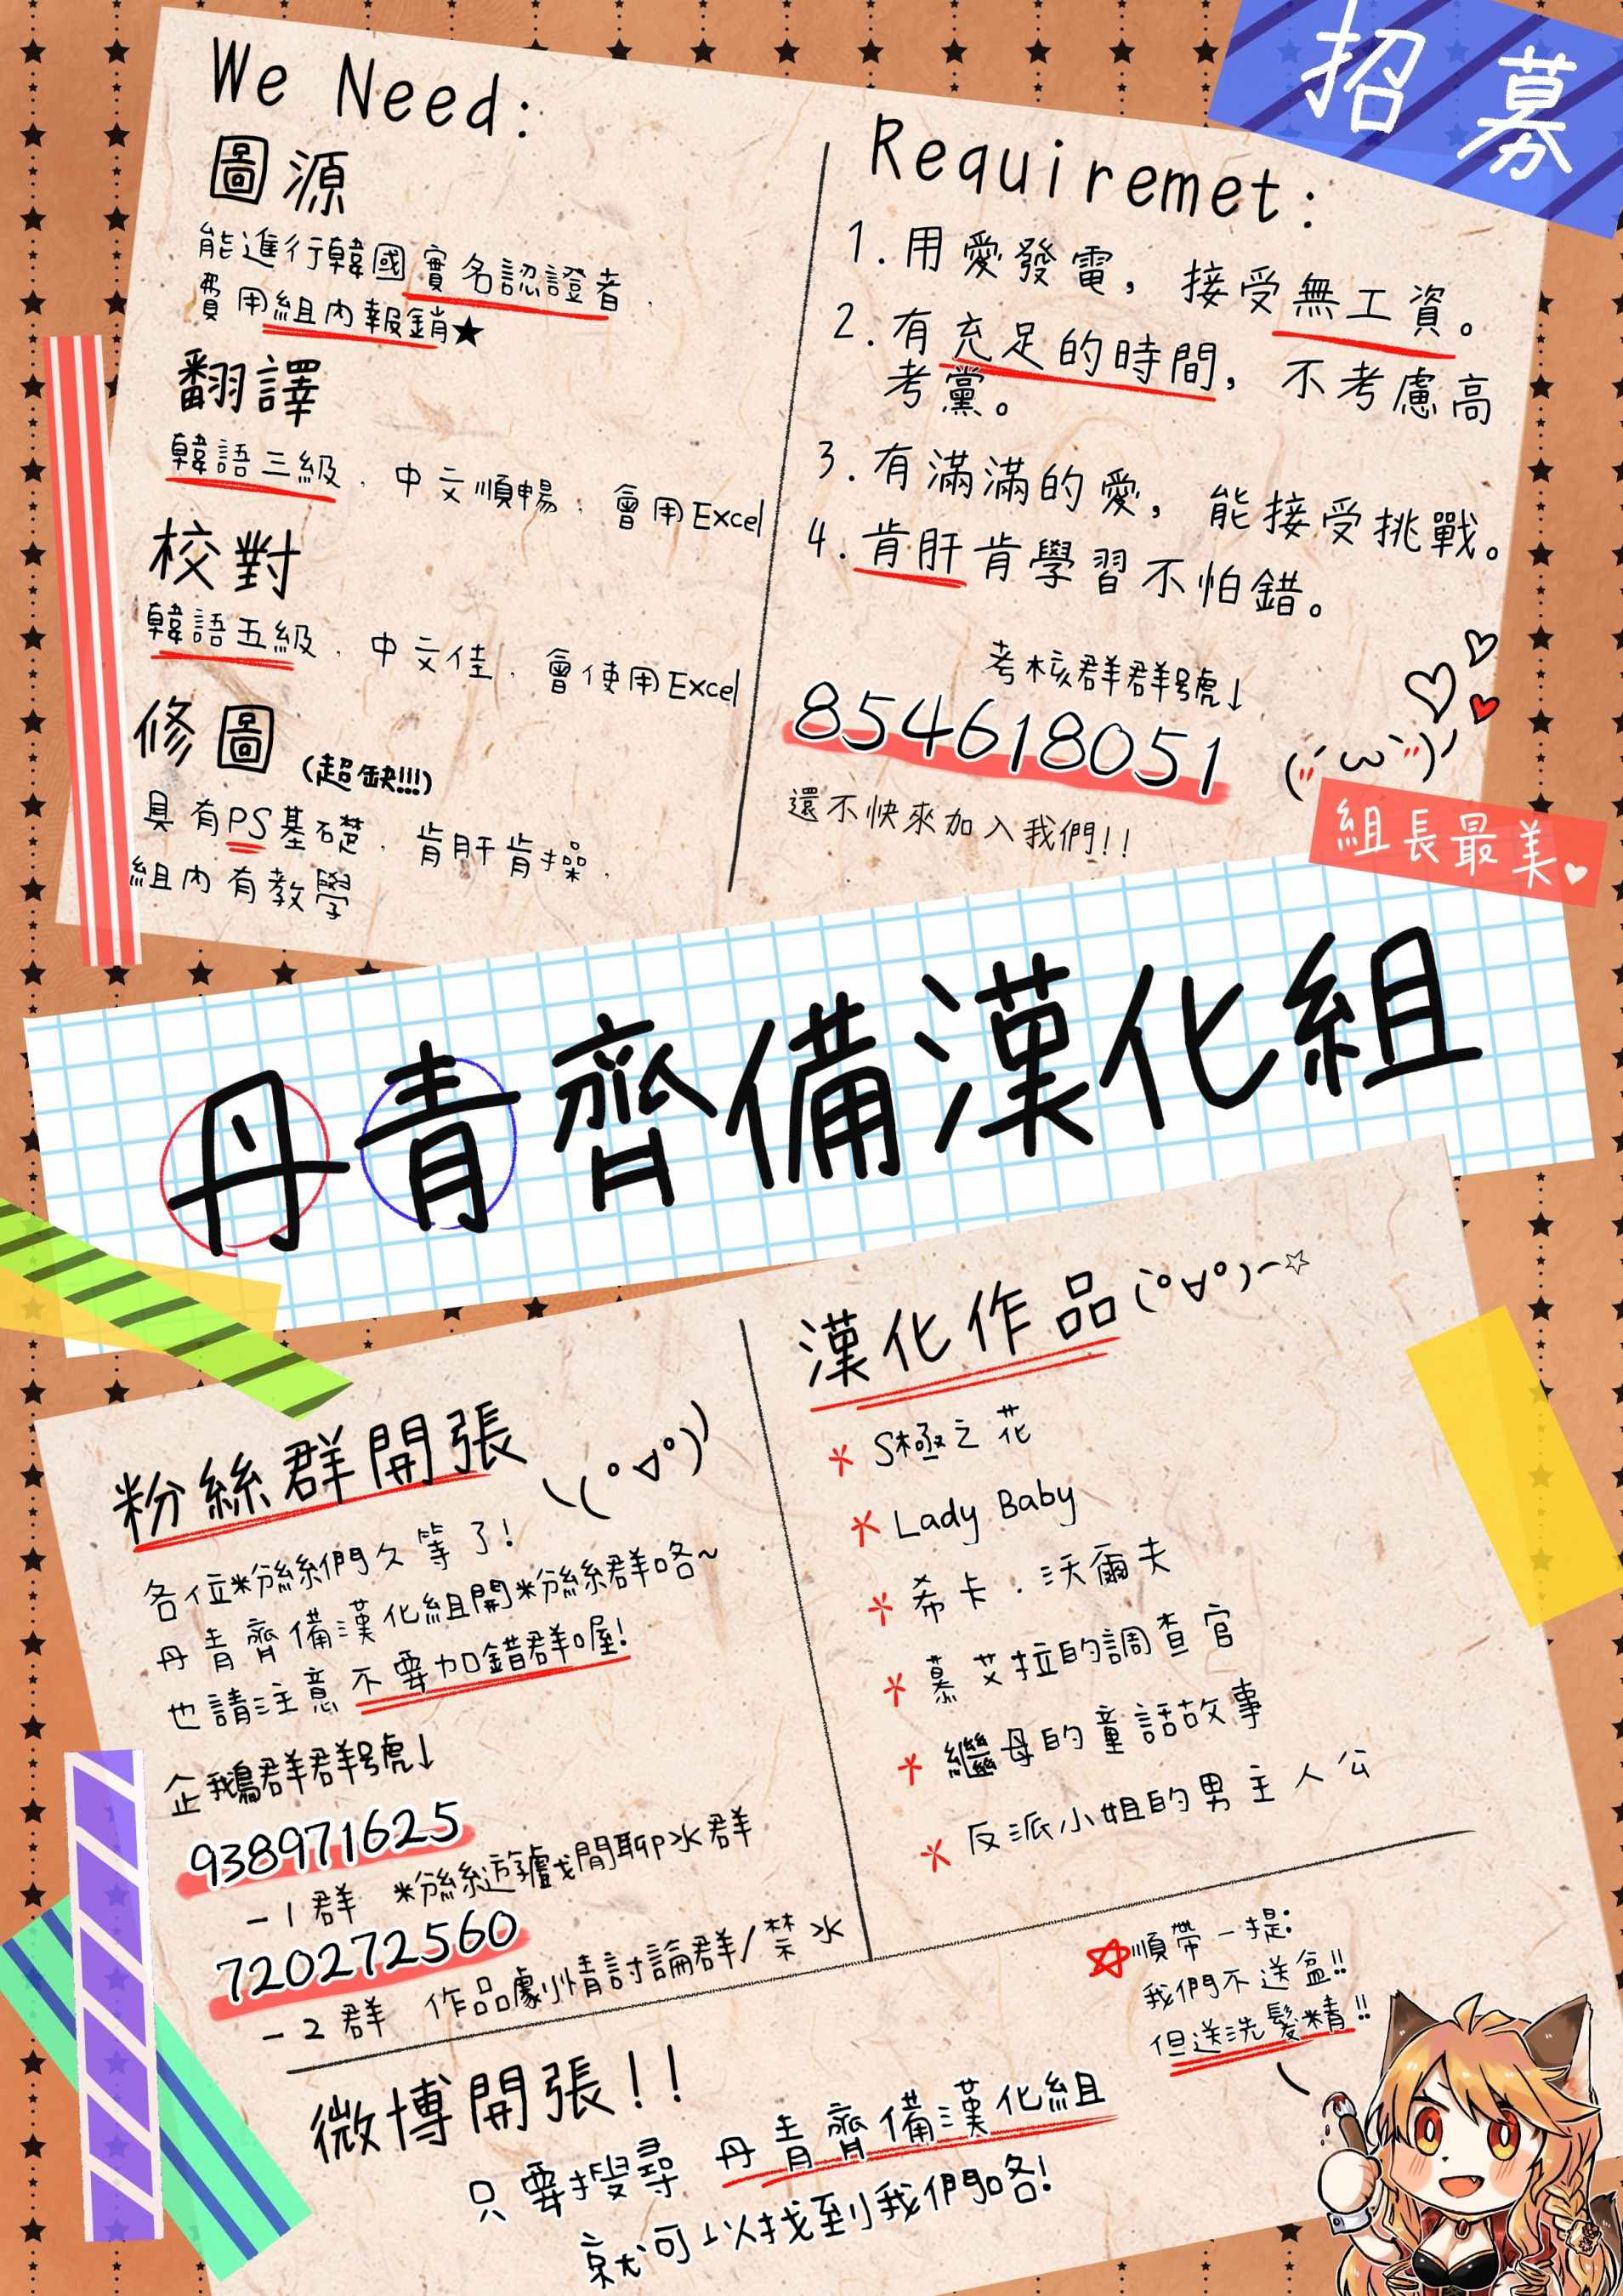 招募
We Need:
圖源
能進行韓國實名認證者,
費用組內報銷★
翻譯
韓語三級,中文順暢,會用Excel
校對
韓語五級,中文佳,會使用Excel
修圖(超缺!!!)
具有PS基礎,肯肝肯操,
組內有教學
Requiremet:
1.用愛發電,接受無工資。
2.有充足的時間,不考慮高
考黨。
3.有滿滿的愛,能接受挑戰。
4.肯肝肯學習不怕錯。
考核群群號↓
854618051
還不快來加入我們!!
(〃'ω'〃)
組長最美♥
丹青齊備漢化組
粉絲群開張 \(°▽°)/
各位粉絲們久等了!
丹青齊備漢化組開粉絲群咯~
也請注意不要加錯群喔!
企鵝群群號↓
938971625
-1群 粉絲遊戲閒聊水群
720272560
-2群 作品劇情討論群/禁水
漢化作品(°∀°)~☆
*S極之花
*Lady Baby
*希卡.沃爾夫
*慕艾拉的調查官
*繼母的童話故事
*反派小姐的男主人公
☆順帶一提:
我們不送盒!!
但送洗髮精!!
微博開張!!
只要搜尋 丹青齊備漢化組
就可以找到我們咯!